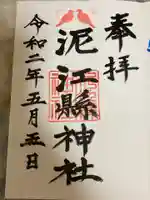 奉拝
泥江縣神社
令和二年五月五日